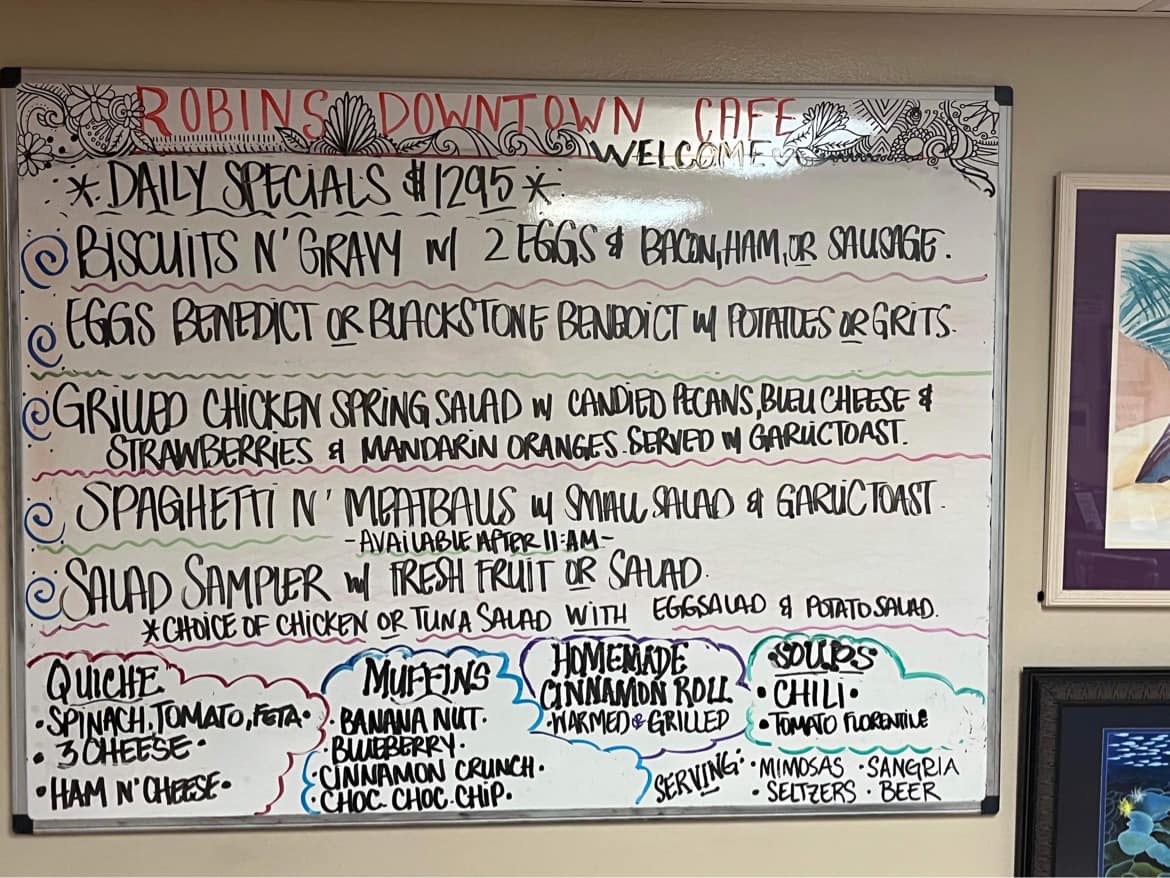 ROBINS DOWNTOWN CAFE
WELCOME
*DAILY SPECIALS $12.95*
BISCUITS N' GRAVY W/ 2 EGGS & BACON, HAM, OR SAUSAGE.
EGGS BENEDICT OR BLACKSTONE BENEDICT W/ POTATOES OR GRITS.
GRILLED CHICKEN SPRING SALAD W/ CANDIED PECANS, BLEU CHEESE &
STRAWBERRIES & MANDARIN ORANGES. SERVED W/ GARLIC TOAST.
SPAGHETTI N' MEATBALLS W/ SMALL SALAD & GARLIC TOAST.
-AVAILABLE AFTER 11:AM-
SALAD SAMPLER W/ FRESH FRUIT OR SALAD.
*CHOICE OF CHICKEN OR TUNA SALAD WITH EGGSALAD & POTATO SALAD.
QUICHE
•SPINACH, TOMATO, FETA•
• 3 CHEESE •
•HAM N' CHEESE•
MUFFINS
• BANANA NUT •
• BLUEBERRY •
• CINNAMON CRUNCH •
• CHOC. CHOC. CHIP.
HOMEMADE
CINNAMON ROLL
•WARMED & GRILLED
SOUPS
• CHILI •
• TOMATO FLORENTINE
SERVING: • MIMOSAS • SANGRIA
• SELTZERS • BEER